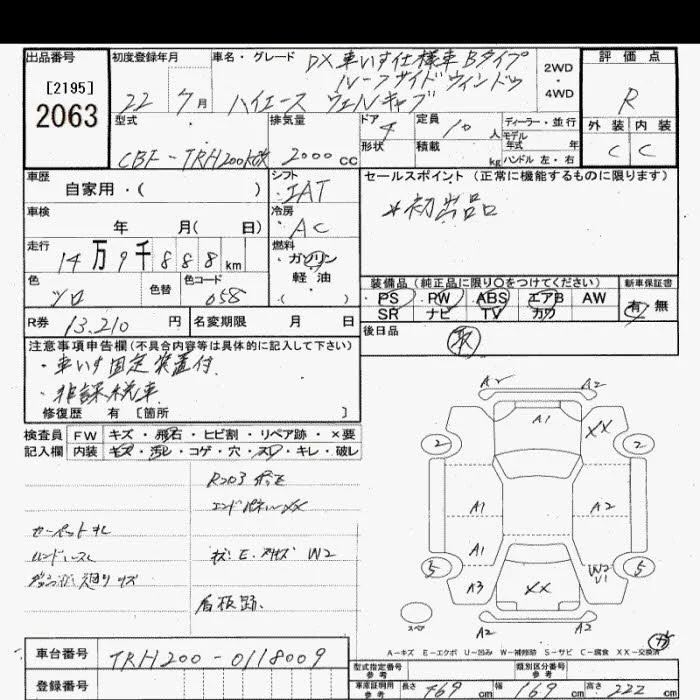 出品番号
[2195]
2063
初度登録年月
22 7 月
車名・グレード
DX 車いす仕様車 Bタイプ
ルーフサイドウィンドウ
ハイエース ウェルキャブ
2WD
・
4WD
評価点
R
外装 内装
C C
型式
CBF-TRH200K改
排気量
2000 cc
ドア
4
形状
定員
10 人
積載
kg
ディーラー・並行
モデル
年式 年
ハンドル 左・右
車歴
自家用・( )
シフト
IAT
セールスポイント(正常に機能するものに限ります)
*初出品
車検
年 月( 日)
冷房
AC
走行
14万9千888km
燃料
ガソリン
軽油
( )
色
シロ
色替
色コード
058
装備品(純正品に限り〇をつけてください)
PS PW ABS エアB AW
SR ナビ TV カワ
新車保証書
有・無
R券 13,210 円
名変期限 月 日
後日品
取
注意事項申告欄(不具合内容等は具体的に記入して下さい)
・車いす固定装置付
・非課税車
修復歴 有 [箇所 ]
検査員
記入欄
FW キズ・飛石・ヒビ割・リペア跡・×要
内装 キズ・汚レ・コゲ・穴・スレ・キレ・破レ
エンドパネルXX
W2
看板跡
A2 A2
A1 XX
2 2
A1 A2
A1
5 5
W2
A3 XX U1
スペア
A2 A2
A-キズ E-エクボ U-凹み W-補修跡 S-サビ C-腐食 XX-交換済
車台番号 TRH200-0118009
登録番号
型式指定番号
参考
類別区分番号
参考
車庫証明用
参考
長さ 469 cm
幅 169 cm
高さ 222 cm